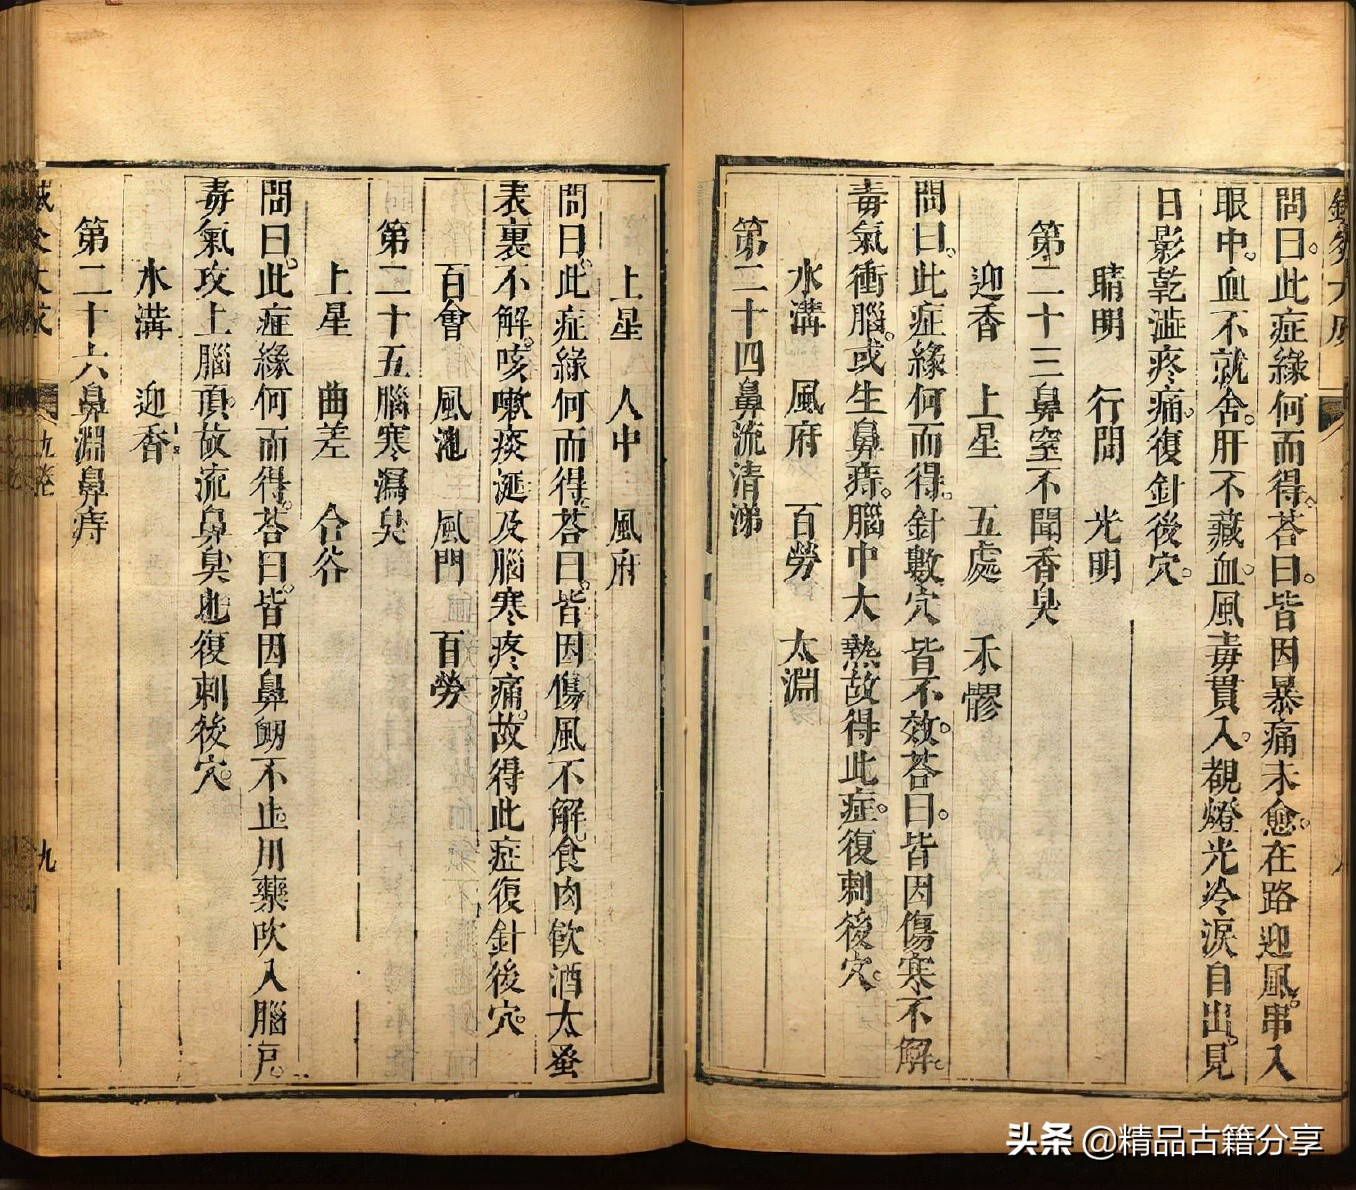 問曰。此症緣何而得。荅曰。皆因暴痛未愈。在路迎風。串入
眼中。血不就舍。肝不藏血。風毒貫入。覩燈光冷淚自出。見
日影乾澁疼痛。復針後穴。
睛明 行間 光明
第二十三鼻窒不聞香臭
迎香 上星 五處 禾髎
問曰。此症緣何而得。針數穴皆不效。荅曰。皆因傷寒不解。
毒氣衝腦。或生鼻痔。腦中大熱。故得此症。復刺後穴。
水溝 風府 百勞 太淵
第二十四鼻流清涕
上星 人中 風府
問曰。此症緣何而得。荅曰。皆因傷風不解。食肉飲酒太蚤
表裏不解。咳嗽痰涎。及腦寒疼痛。故得此症。復針後穴。
百會 風池 風門 百勞
第二十五腦寒瀉臭
上星 曲差 合谷
問曰。此症緣何而得。荅曰。皆因鼻衂不止。用藥吹入腦戶。
毒氣攻上腦頂。故流鼻臭也。復刺後穴。
水溝 迎香
第二十六鼻淵鼻痔
九
头条 @精品古籍分享